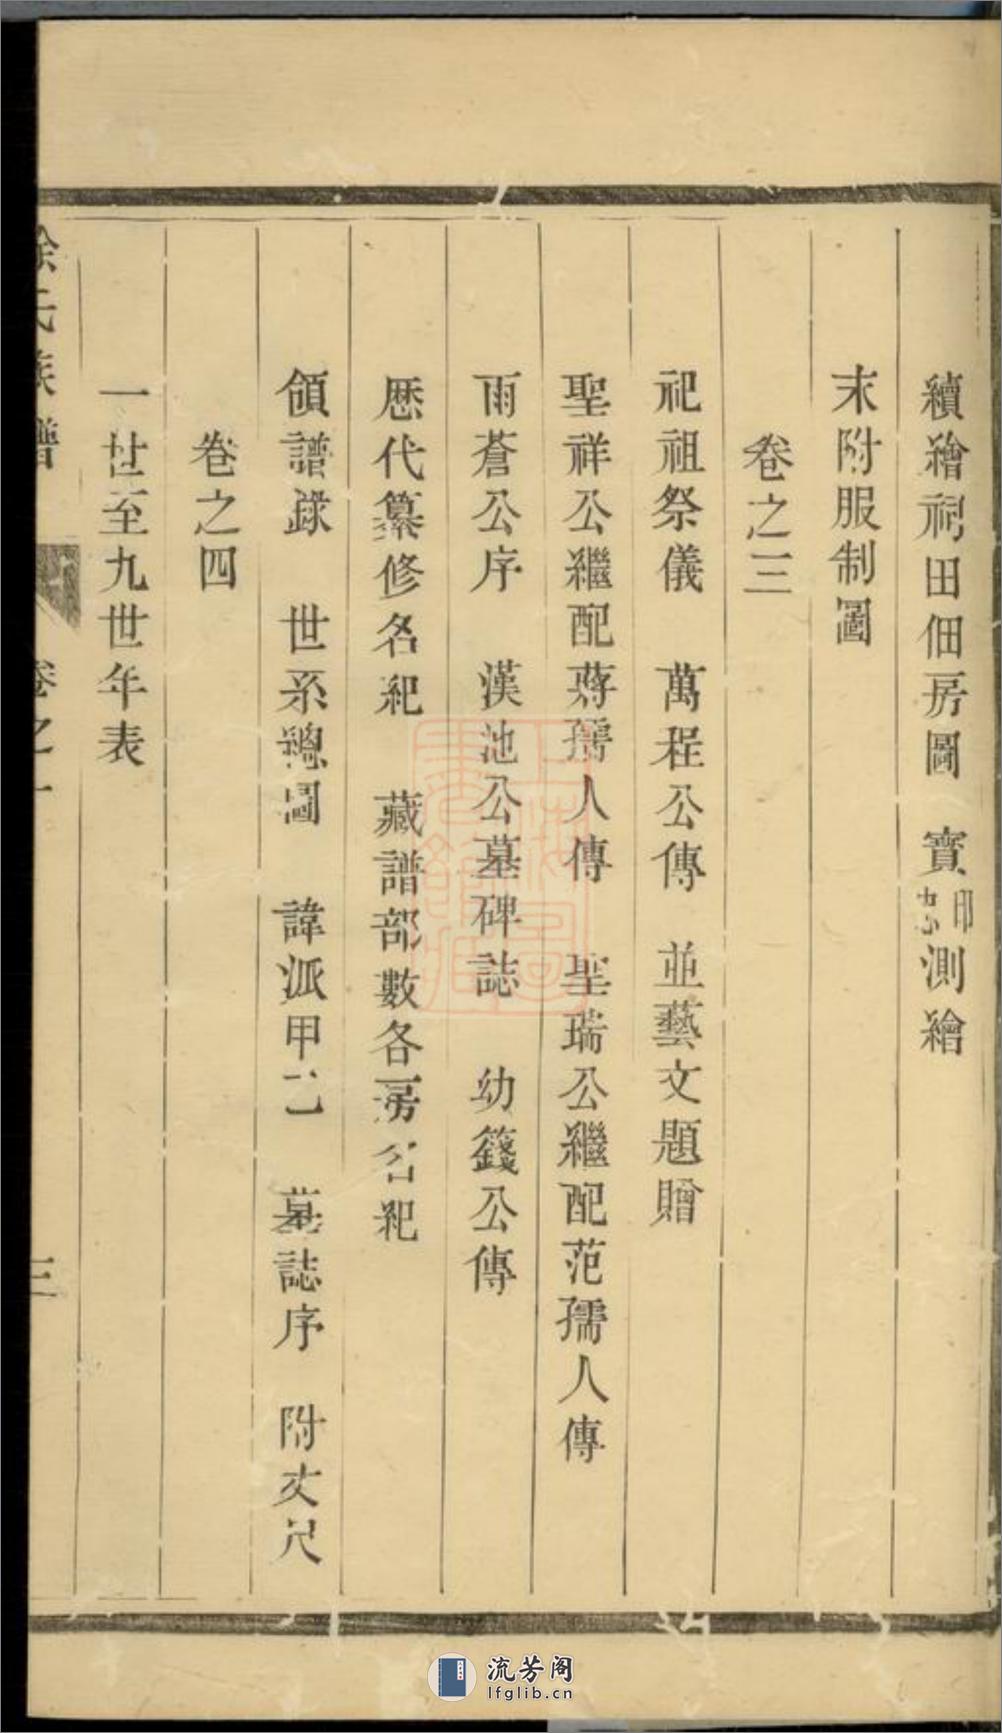 續繪祠田佃房圖 寶 測繪
末附服制圖
卷之三
祀祖祭儀 萬程公傳 並藝文題贈
聖祥公繼配蔣孺人傳 聖瑞公繼配范孺人傳
雨蒼公序 漢池公墓碑誌 幼籛公傳
歷代纂修名紀 藏譜部數各房名紀
領譜錄 世系總圖 諱派甲乙 墓誌序 附丈尺
卷之四
一世至九世年表
徐氏族譜 卷之一 三
流芳阁
lfglib.cn